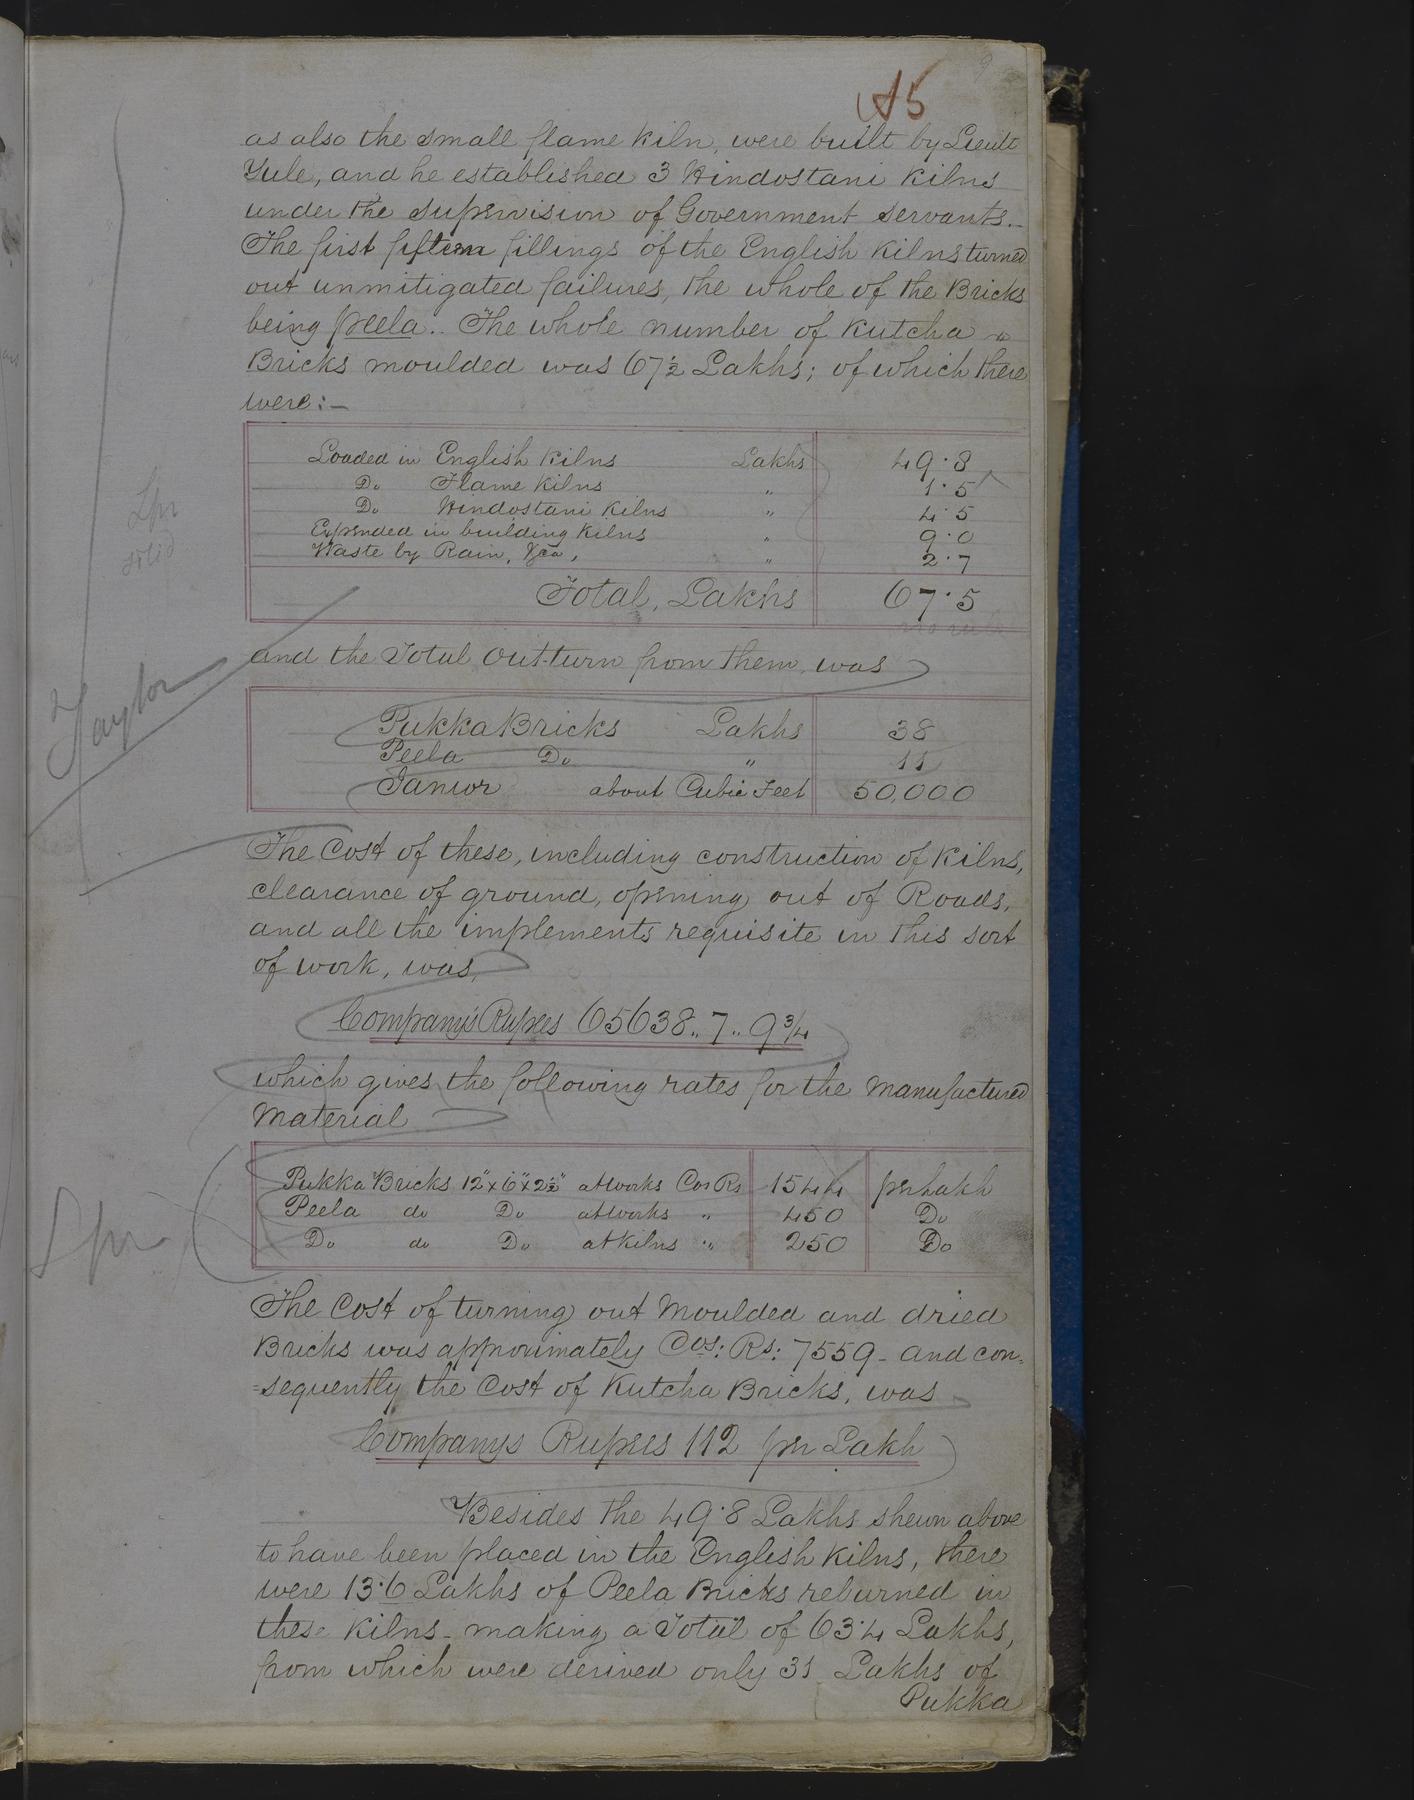 9
A5
as also the small flame Kiln, were built by Lieutt
Yule, and he established 3 Hindostani Kilns
under the supervision of Government servants.-
The first fifteen fillings of the English Kilns turned
out unmitigated failures, the whole of the Bricks
being peela.. The whole number of Kutcha
Bricks moulded was 67½ Lakhs; of which there
were:-
Loaded in English Kilns Lakhs 49·8
Do Flame Kilns " 1·5
Do Hindostani Kilns " 4·5
Expended in building Kilns " 9·0
Waste by Rain, &ca, " 2·7
Total, Lakhs 67·5
and the Total Out-turn from them, was
Pukka Bricks Lakhs 38
Peela Do " 11
Jamor about Cubic Feet 50,000
The Cost of these, including construction of Kilns,
clearance of ground, opening out of Roads,
and all the implements requisite in this sort
of work, was,
Company's Rupees 65638.. 7.. 9¾
which gives the following rates for the Manufactured
Material
Pukka Bricks 12"x 6"x 2½" at works Cos Rs 1544 per Lakh
Peela do Do at works " 450 Do
Do do Do at Kilns " 250 Do
The Cost of turning out Moulded and dried
Bricks was approximately Cos: Rs: 7559 - and con=
=sequently the Cost of Kutcha Bricks, was
Companys Rupees 112 per Lakh
Besides the 49·8 Lakhs shewn above
to have been placed in the English Kilns, there
were 13·6 Lakhs of Peela Bricks reburned in
these Kilns - making a Total of 63·4 Lakhs,
from which were derived only 31 Lakhs of
Pukka
Taylor